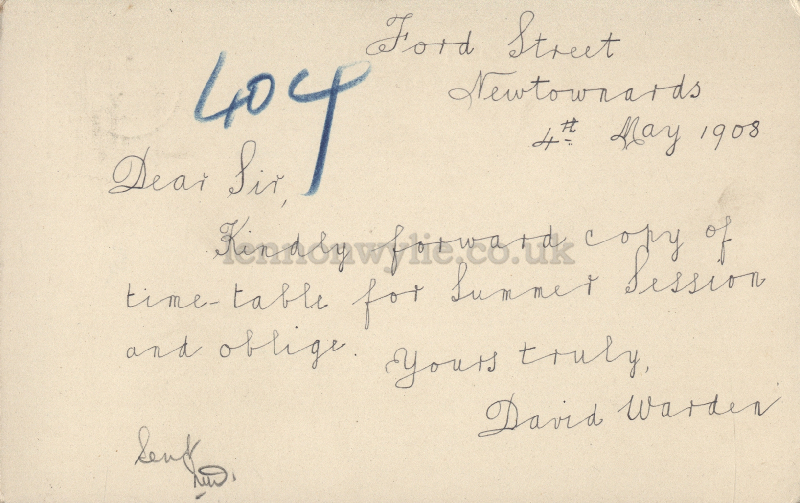 Ford Street
Newtownards
404
4th May 1908
Dear Sir,
Kindly forward copy of
lennonwylie.co.uk
time-table for Summer Session
and oblige.
Yours truly,
David Warden
Sent